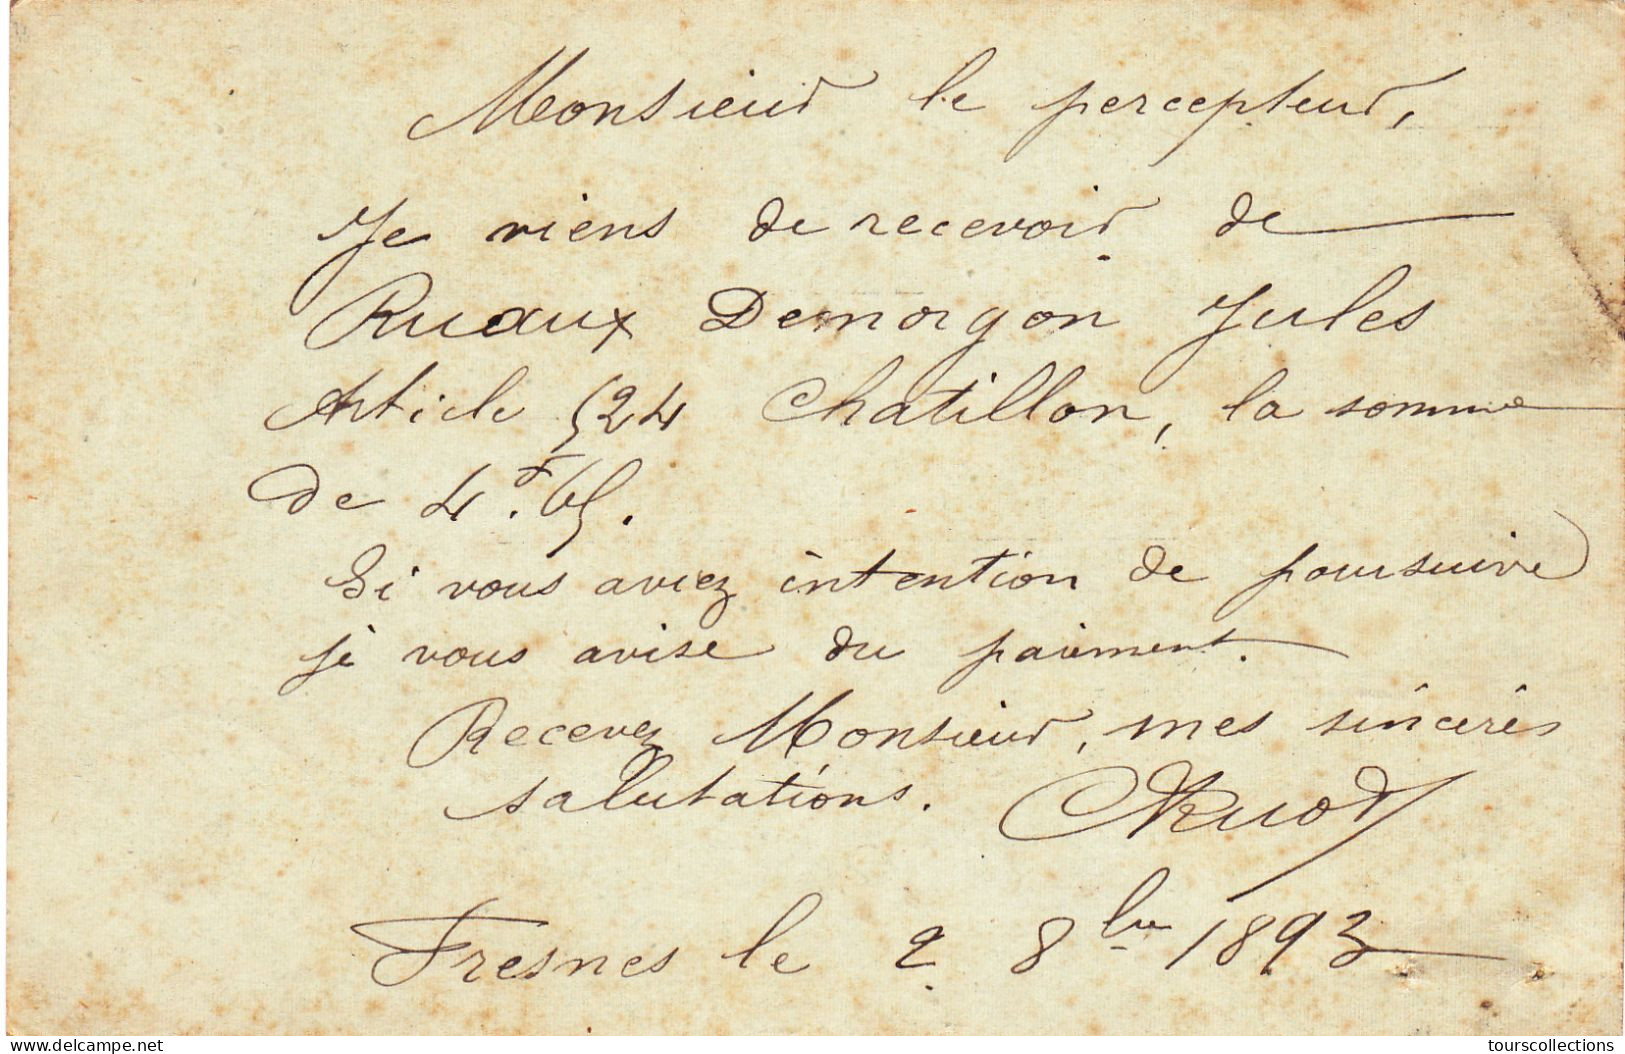 Monsieur le percepteur,
Je viens de recevoir de
Ruaux Demorgon Jules
Article 524 Chatillon, la somme
de 4.f 65.
Si vous aviez intention de poursuivre
je vous avise du paiement.
Recevez Monsieur, mes sincères
salutations.
Fresnes le 2 8bre 1893.
www.delcampe.net
tourscollections